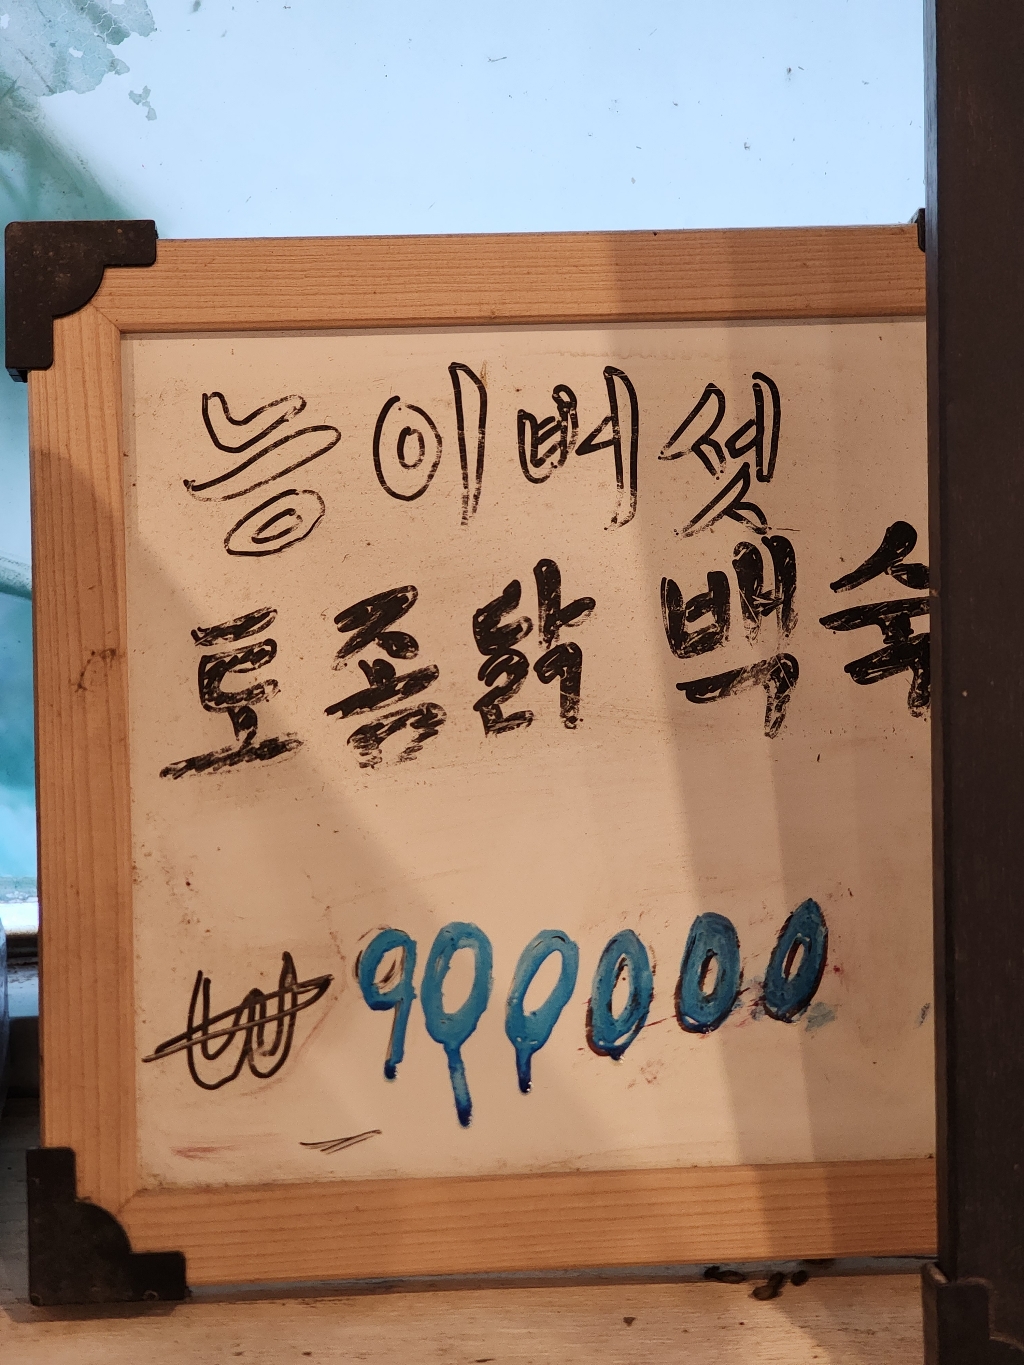 능이버섯
토종닭 백숙
₩ 900000